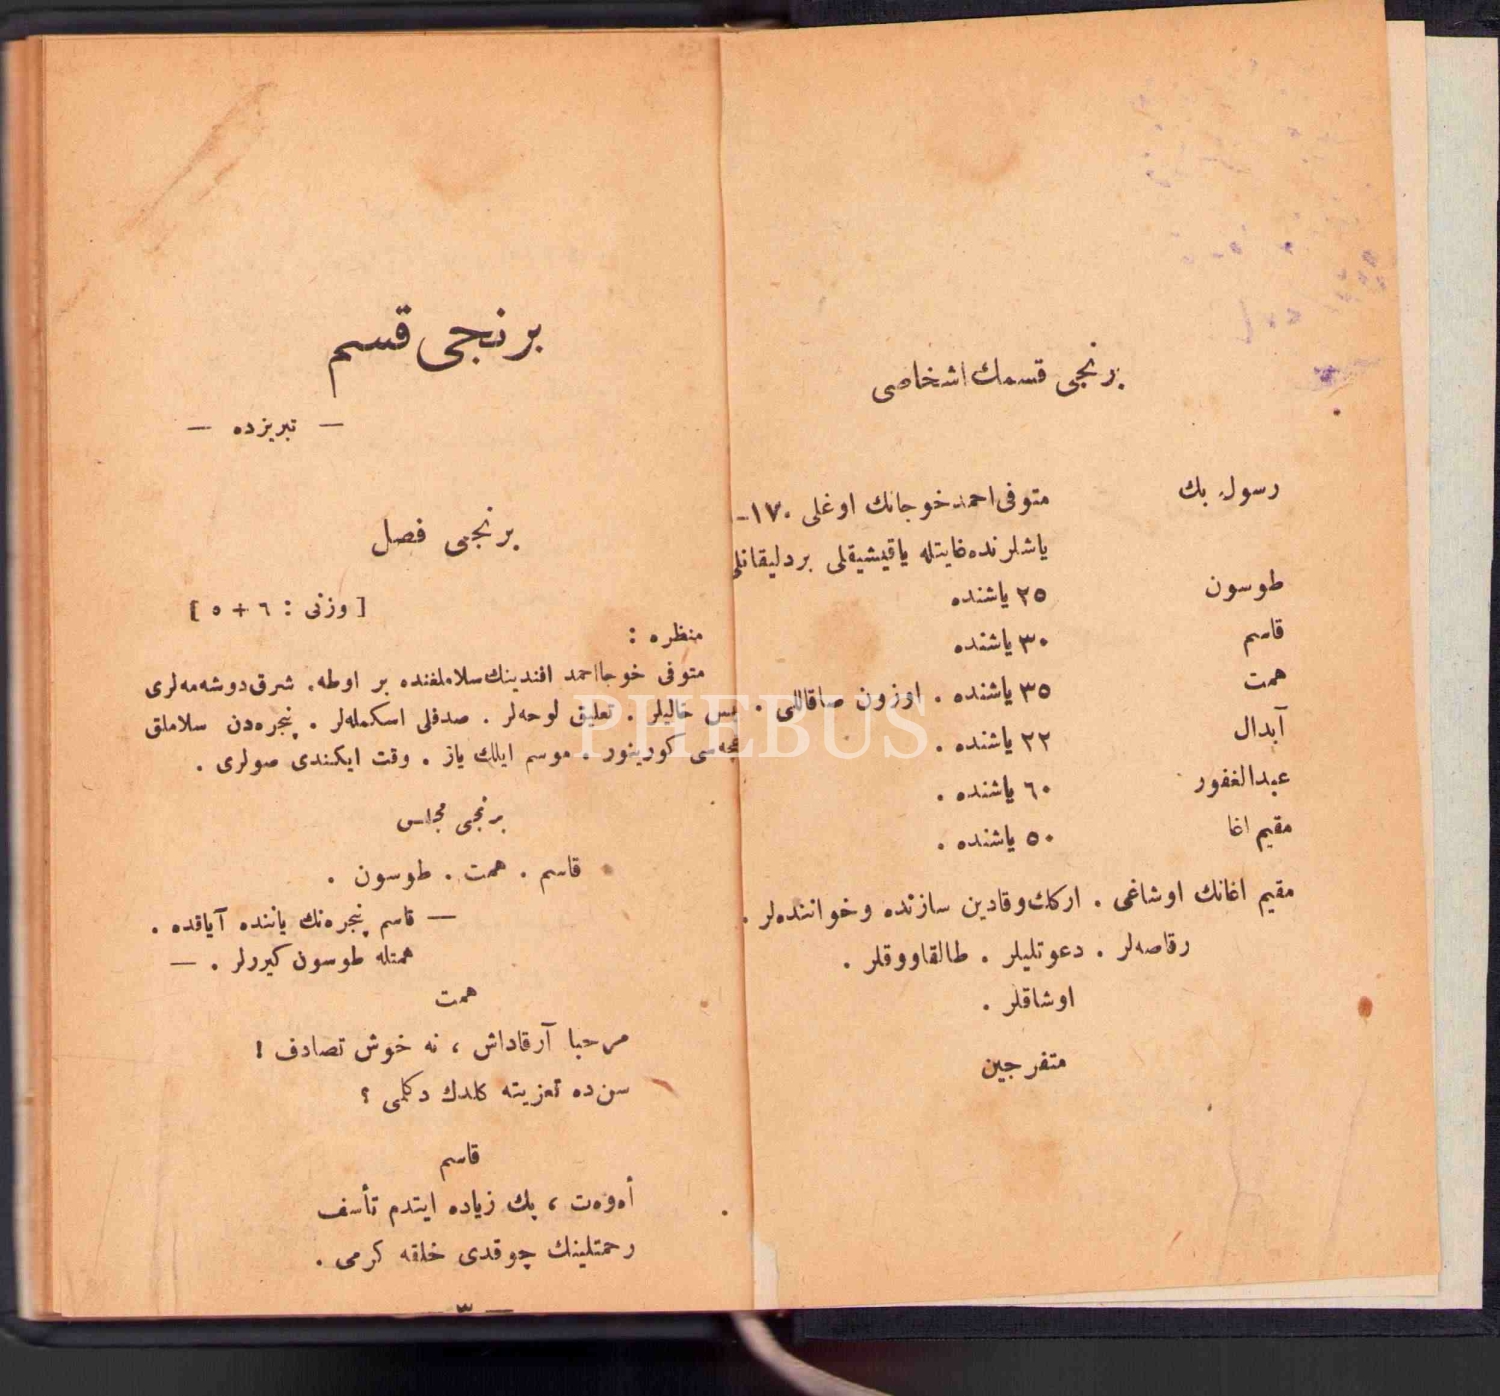 برنجی قسمك اشخاصی
رسول بك
متوفی احمد خوجانك اوغلی ۱۷۰-
یاشلرنده غایتله یاقیشیقلی بر دلیقانلی
طوسون ۲۵ یاشنده
قاسم ۳۰ یاشنده
همت ۳۵ یاشنده . اوزون صاقاللی .
آبدال ۲۲ یاشنده .
عبدالغفور ٦۰ یاشنده .
مقیم اغا ۵۰ یاشنده .
مقیم اغانك اوشاغی . اركك وقادین سازنده وخواننده‌لر .
رقاصه‌لر . دعوتلیلر . طالقاووقلر .
اوشاقلر .
متفرجین
برنجی قسم
— تبریزده —
برنجی فصل
[ وزنی : ٦ + ٥ ]
منظره :
متوفی خوجا احمد افندینك سلاملغنده بر اوطه. شرق دوشه‌مه‌لری
خالیلر . تعلیق لوحه‌لر . صدفلی اسكمله‌لر . پنجره‌دن سلاملق
كورینور . موسم ایلك یاز . وقت ایكندی صولری .
برنجی مجلس
قاسم . همت . طوسون .
— قاسم پنجره‌نك یاننده آیاقده .
همتله طوسون كیررلر . —
همت
مرحبا آرقاداش ، نه خوش تصادف !
سن ده تعزیته كلدك دكلمی ؟
قاسم
أه‌وه‌ت ، پك زیاده ایتدم تأسف
رحمتلینك چوقدی خلقه كرمی .
— ۳ —
PHEBUS